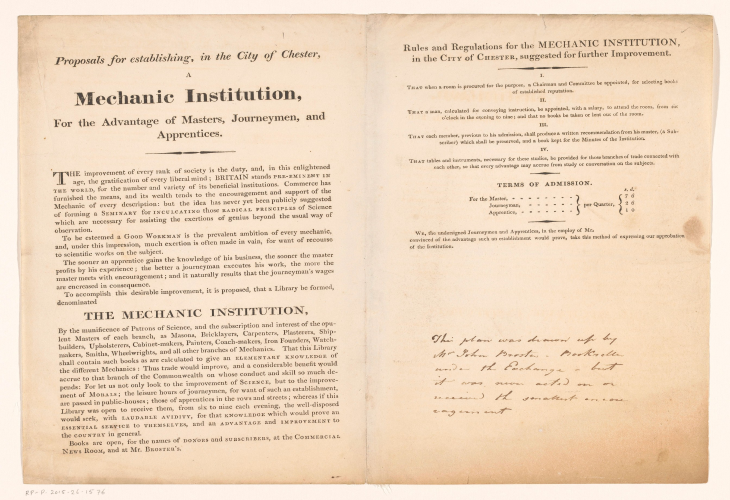 Proposals for establishing, in the City of Chester,
A
Mechanic Institution,
For the Advantage of Masters, Journeymen, and
Apprentices.
THE improvement of every rank of society is the duty, and, in this enlightened
age, the gratification of every liberal mind; BRITAIN stands PRE-EMINENT IN
THE WORLD, for the number and variety of its beneficial institutions. Commerce has
furnished the means, and its wealth tends to the encouragement and support of the
Mechanic of every description: but the idea has never yet been publicly suggested
of forming a SEMINARY for INCULCATING those RADICAL PRINCIPLES of Science
which are necessary for assisting the exertions of genius beyond the usual way of
observation.
To be esteemed a GOOD WORKMAN is the prevalent ambition of every mechanic,
and, under this impression, much exertion is often made in vain, for want of recourse
to scientific works on the subject.
The sooner an apprentice gains the knowledge of his business, the sooner the master
profits by his experience; the better a journeyman executes his work, the more the
master meets with encouragement; and it naturally results that the journeyman's wages
are encreased in consequence.
To accomplish this desirable improvement, it is proposed, that a Library be formed,
denominated
THE MECHANIC INSTITUTION,
By the munificence of Patrons of Science, and the subscription and interest of the opu-
lent Masters of each branch, as Masons, Bricklayers, Carpenters, Plasterers, Ship-
builders, Upholsterers, Cabinet-makers, Painters, Coach-makers, Iron Founders, Watch-
makers, Smiths, Wheelwrights, and all other branches of Mechanics. That this Library
shall contain such books as are calculated to give an ELEMENTARY KNOWLEDGE of
the different Mechanics: Thus trade would improve, and a considerable benefit would
accrue to that branch of the Commonwealth on whose conduct and skill so much de-
pends: For let us not only look to the improvement of SCIENCE, but to the improve-
ment of MORALS; the leisure hours of journeymen, for want of such an establishment,
are passed in public-houses; those of apprentices in the rows and streets; whereas if this
Library was open to receive them, from six to nine each evening, the well-disposed
would seek, with LAUDABLE AVIDITY, for that KNOWLEDGE which would prove an
ESSENTIAL SERVICE to THEMSELVES, and an ADVANTAGE and IMPROVEMENT to
the COUNTRY in general.
Books are open, for the names of DONORS and SUBSCRIBERS, at the COMMERCIAL
NEWS ROOM, and at Mr. BROSTER'S.
Rules and Regulations for the MECHANIC INSTITUTION,
in the CITY OF CHESTER, suggested for further Improvement.
I.
THAT when a room is procured for the purpose, a Chairman and Committee be appointed, for selecting books
of established reputation.
II.
THAT a man, calculated for conveying instruction, be appointed, with a salary, to attend the room, from six
o'clock in the evening to nine; and that no books be taken or lent out of the room.
III.
THAT each member, previous to his admission, shall produce a written recommendation from his master, (a Sub-
scriber) which shall be preserved, and a book kept for the Minutes of the Institution.
IV.
THAT tables and instruments, necessary for these studies, be provided for those branches of trade connected with
each other, so that every advantage may accrue from study or conversation on the subjects.
TERMS OF ADMISSION.
s. d.
For the Master,
Journeyman, per Quarter,
Apprentice,
WE, the undersigned Journeymen and Apprentices, in the employ of Mr.
convinced of the advantage such an establishment would prove, take this method of expressing our approbation
of the Institution.
This plan was drawn up by
Mr John Broster - Bookseller
under the Exchange - but
it was never acted on or
received the smallest encou
ragement